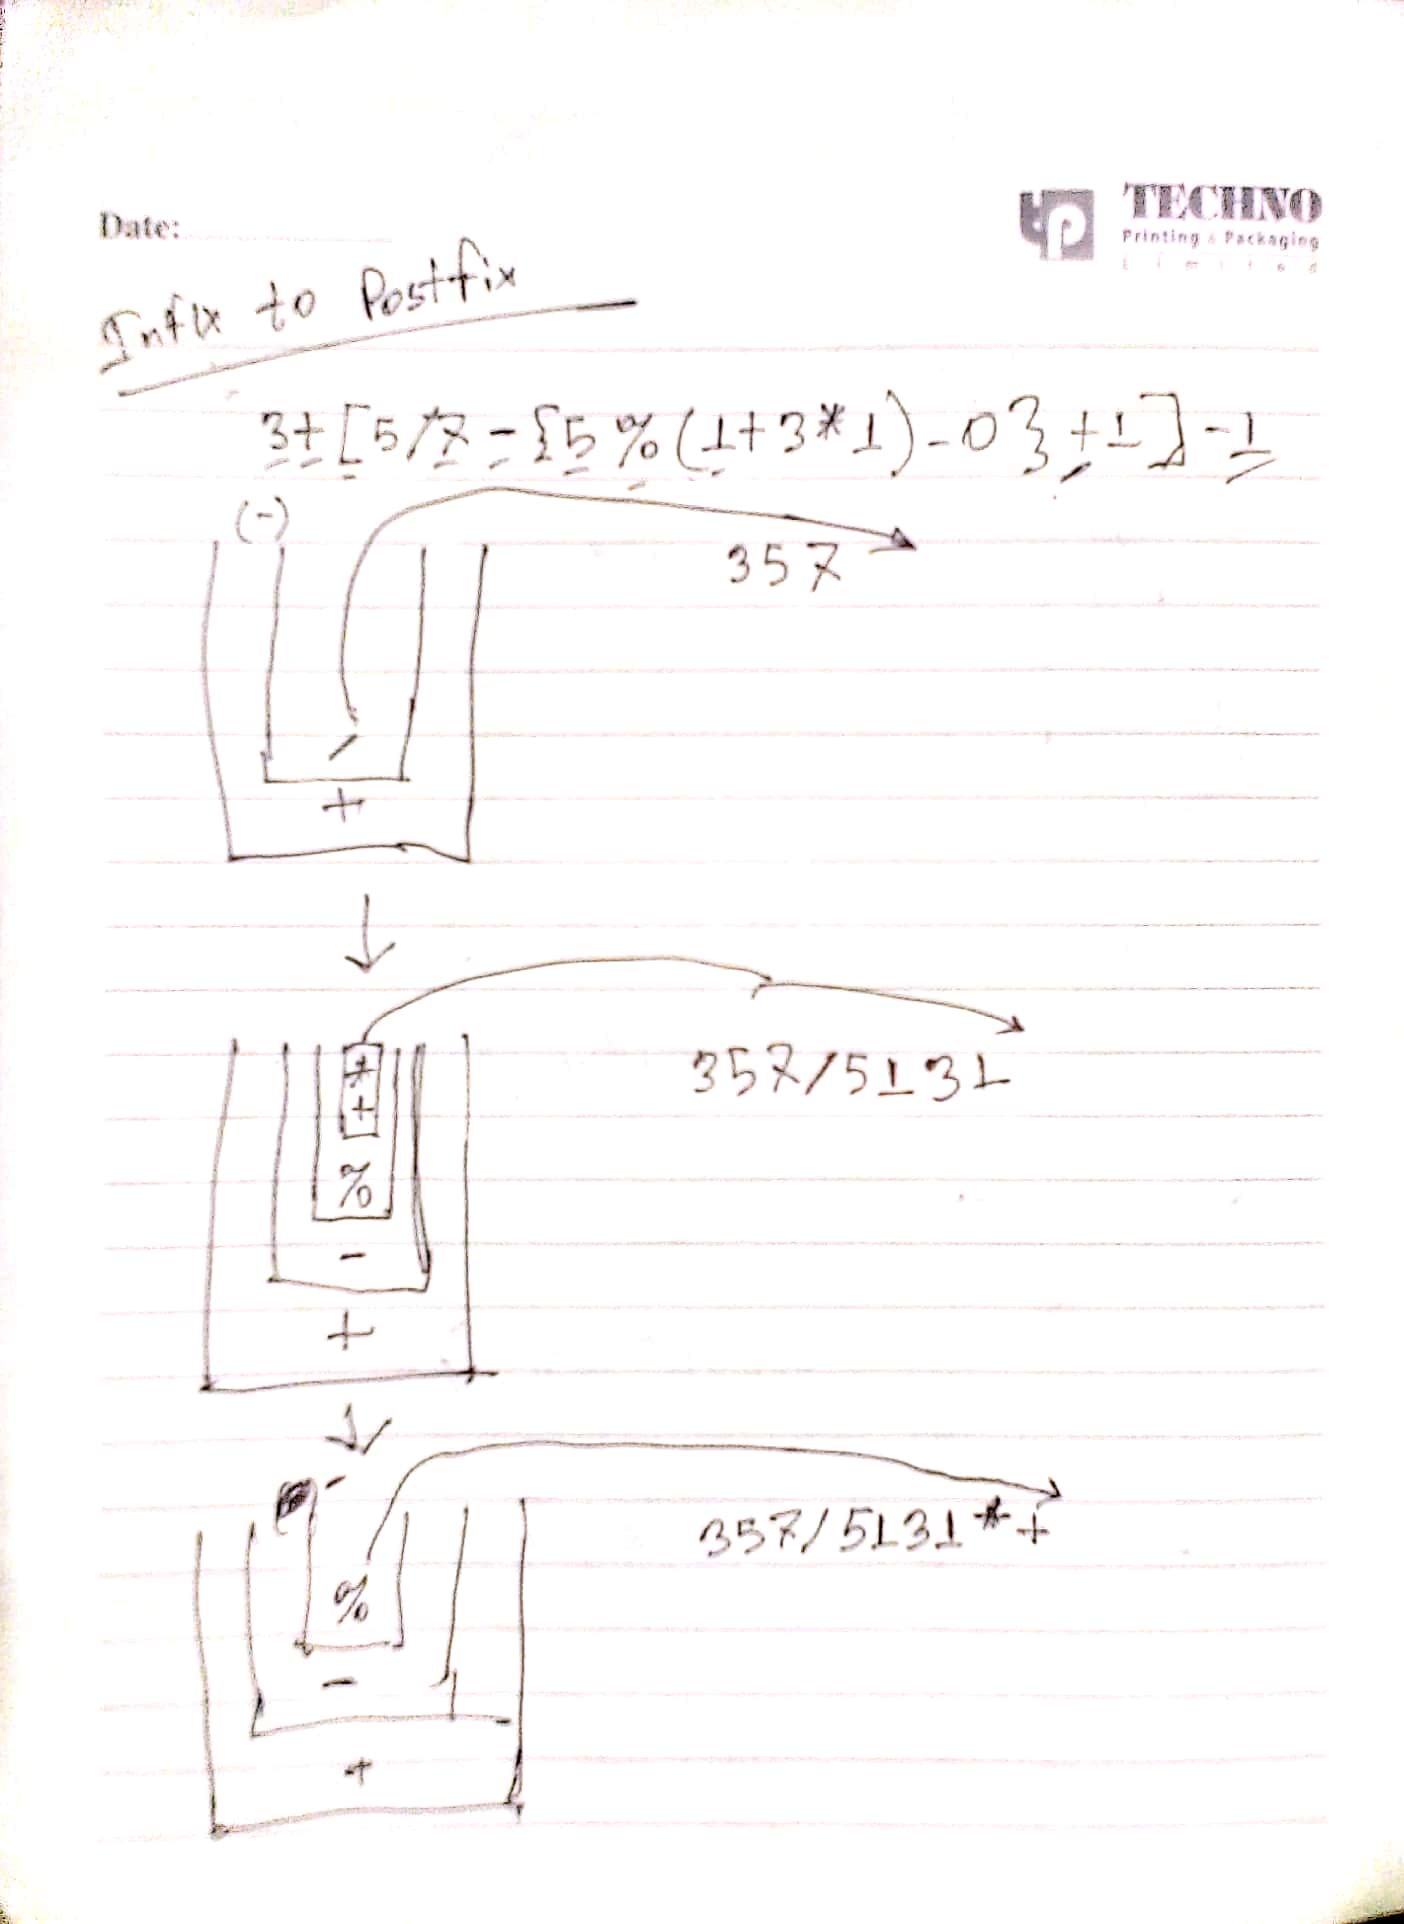 Date:
TECHNO
Printing & Packaging
Limited
Infix to Postfix
3+[5/7-{5%(1+3*1)-0}+1]-1
(-)
357
/
+
*
+
357/5131
%
-
+
-
357/5131*+
%
-
+